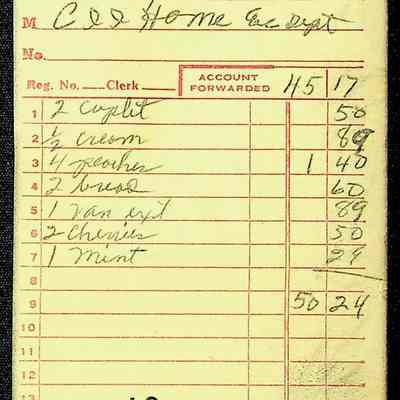 M Home Ec Dept
No.
Reg. No. Clerk ACCOUNT FORWARDED 45 17
1 2 50
2 1/2 cream 89
3 4 peaches 1 40
4 2 bread 60
5 1 Van ext 89
6 2 Cherries 50
7 1 Mint 29
8
9 50 24
10
11
12
13